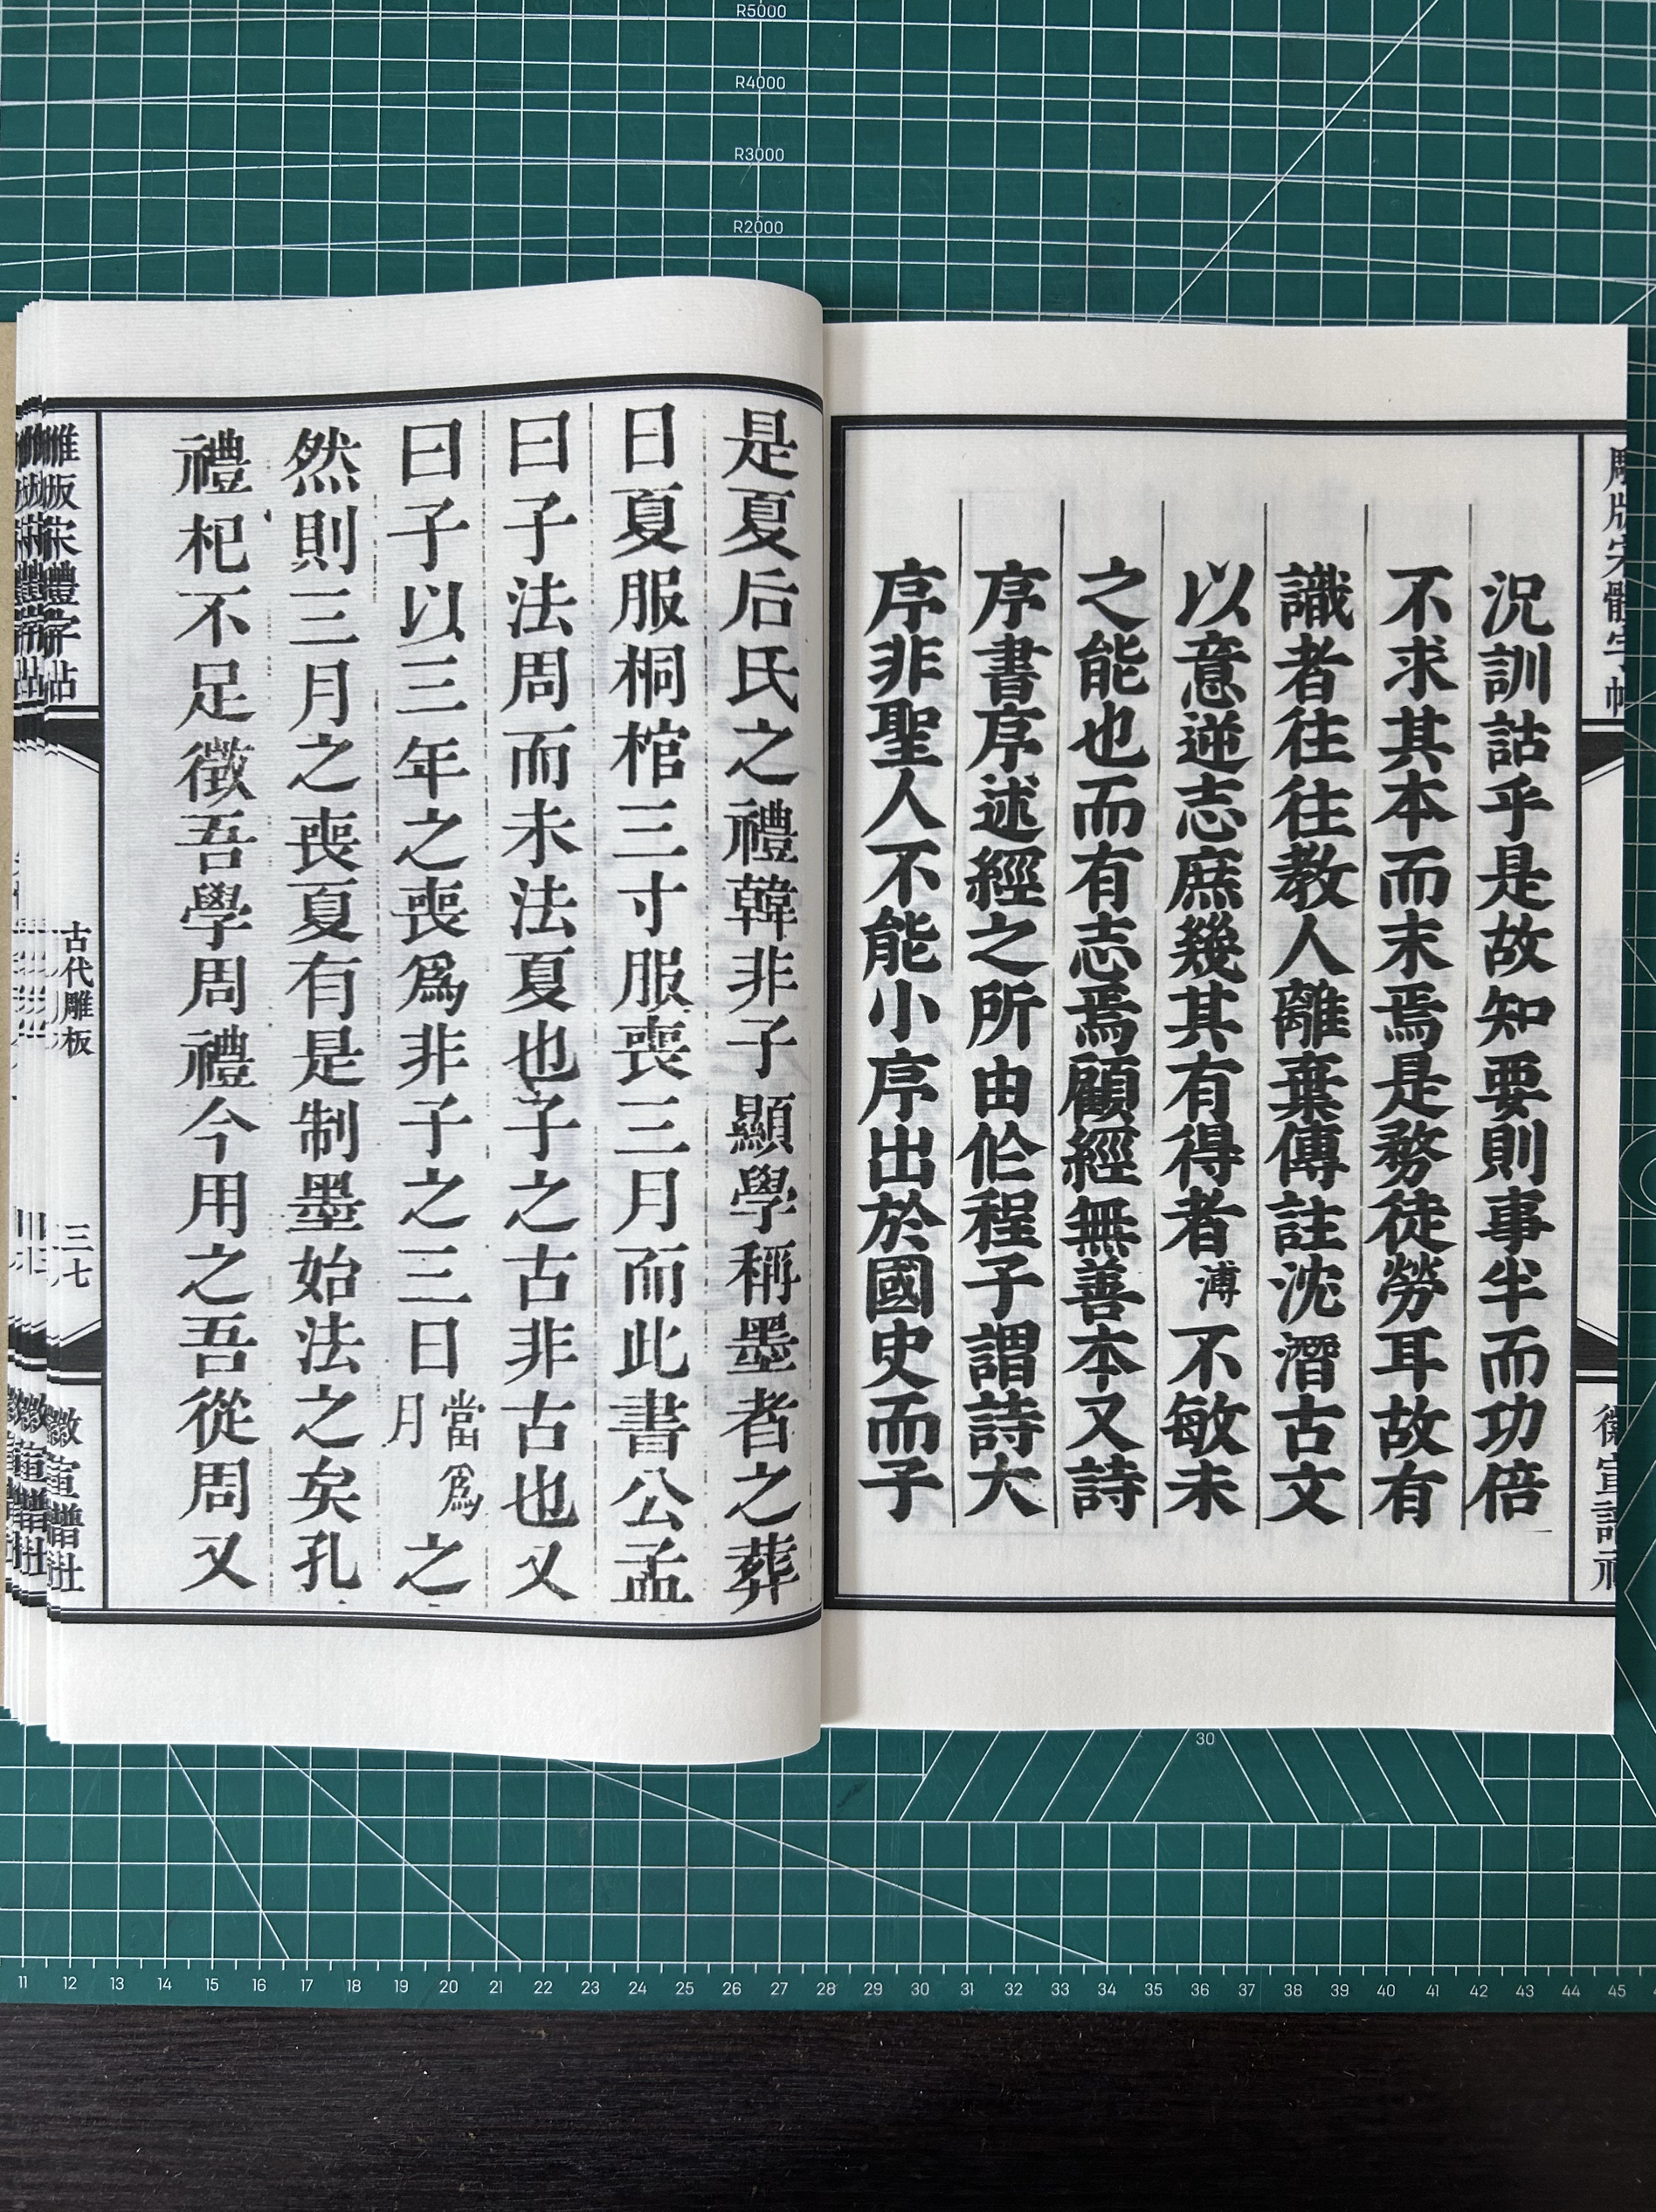 R5000
R4000
R3000
R2000
況訓詁乎是故知要則事半而功倍
不求其本而末焉是務徒勞耳故有
識者往往教人離棄傳註沈潛古文
以意逆志庶幾其有得者溥不敏未
之能也而有志焉顧經無善本又詩
序書序述經之所由作程子謂詩大
序非聖人不能小序出於國史而子
是夏后氏之禮韓非子顯學稱墨者之葬
日夏服桐棺三寸服喪三月而此書公孟
曰子法周而未法夏也子之古非古也又
曰子以三年之喪爲非子之三日當爲月之
然則三月之喪夏有是制墨始法之矣孔
禮杞不足徵吾學周禮今用之吾從周又
雕版宋體字帖
古代雕板
三七
徽宣譜社
30
11 12 13 14 15 16 17 18 19 20 21 22 23 24 25 26 27 28 29 30 31 32 33 34 35 36 37 38 39 40 41 42 43 44 45